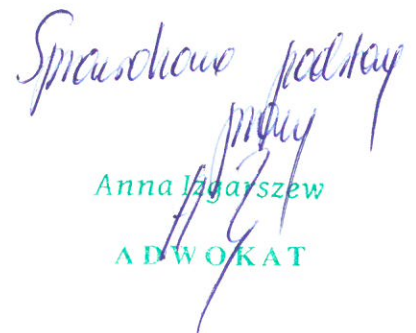 Sprawdzono podstawę
Anna Izgarszew
ADWOKAT